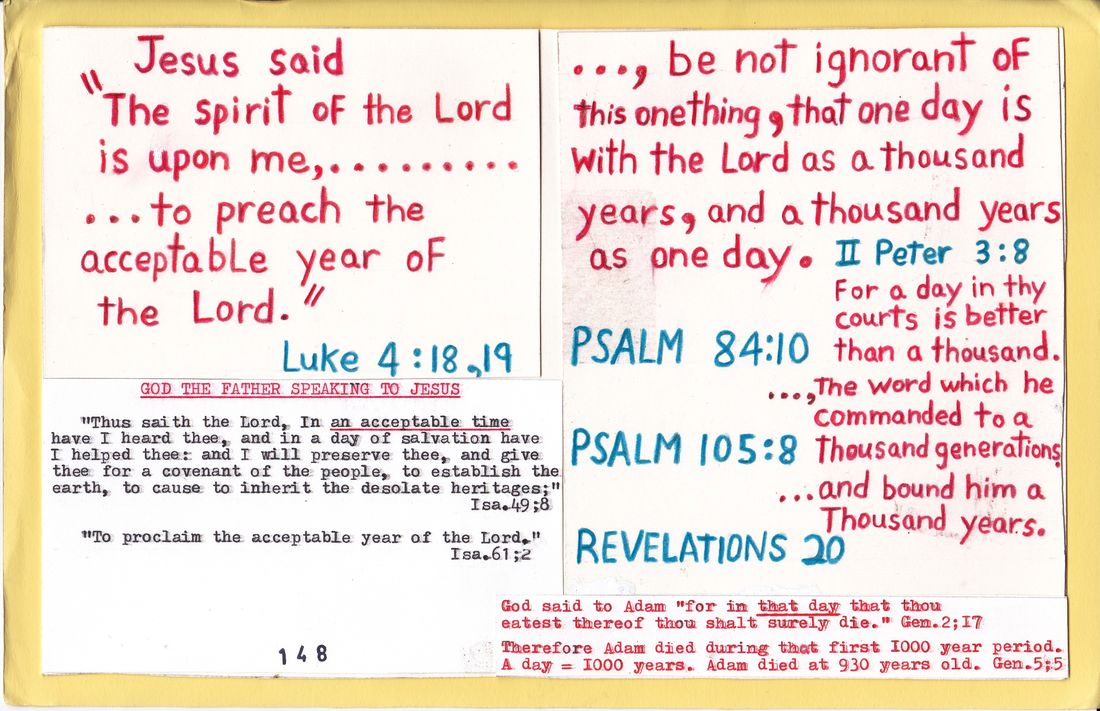 Jesus said
"The spirit of the Lord
is upon me,.........
...to preach the
acceptable year of
the Lord."
Luke 4:18,19
GOD THE FATHER SPEAKING TO JESUS
"Thus saith the Lord, In an acceptable time
have I heard thee, and in a day of salvation have
I helped thee: and I will preserve thee, and give
thee for a covenant of the people, to establish the
earth, to cause to inherit the desolate heritages;"
Isa.49;8
"To proclaim the acceptable year of the Lord."
Isa.61;2
148
..., be not ignorant of
this onething, that one day is
with the Lord as a thousand
years, and a thousand years
as one day. II Peter 3:8
For a day in thy
courts is better
PSALM 84:10 than a thousand.
...,The word which he
commanded to a
PSALM 105:8 Thousand generations
...and bound him a
Thousand years.
REVELATIONS 20
God said to Adam "for in that day that thou
eatest thereof thou shalt surely die." Gen.2;I7
Therefore Adam died during that first I000 year period.
A day = I000 years. Adam died at 930 years old. Gen.5;5